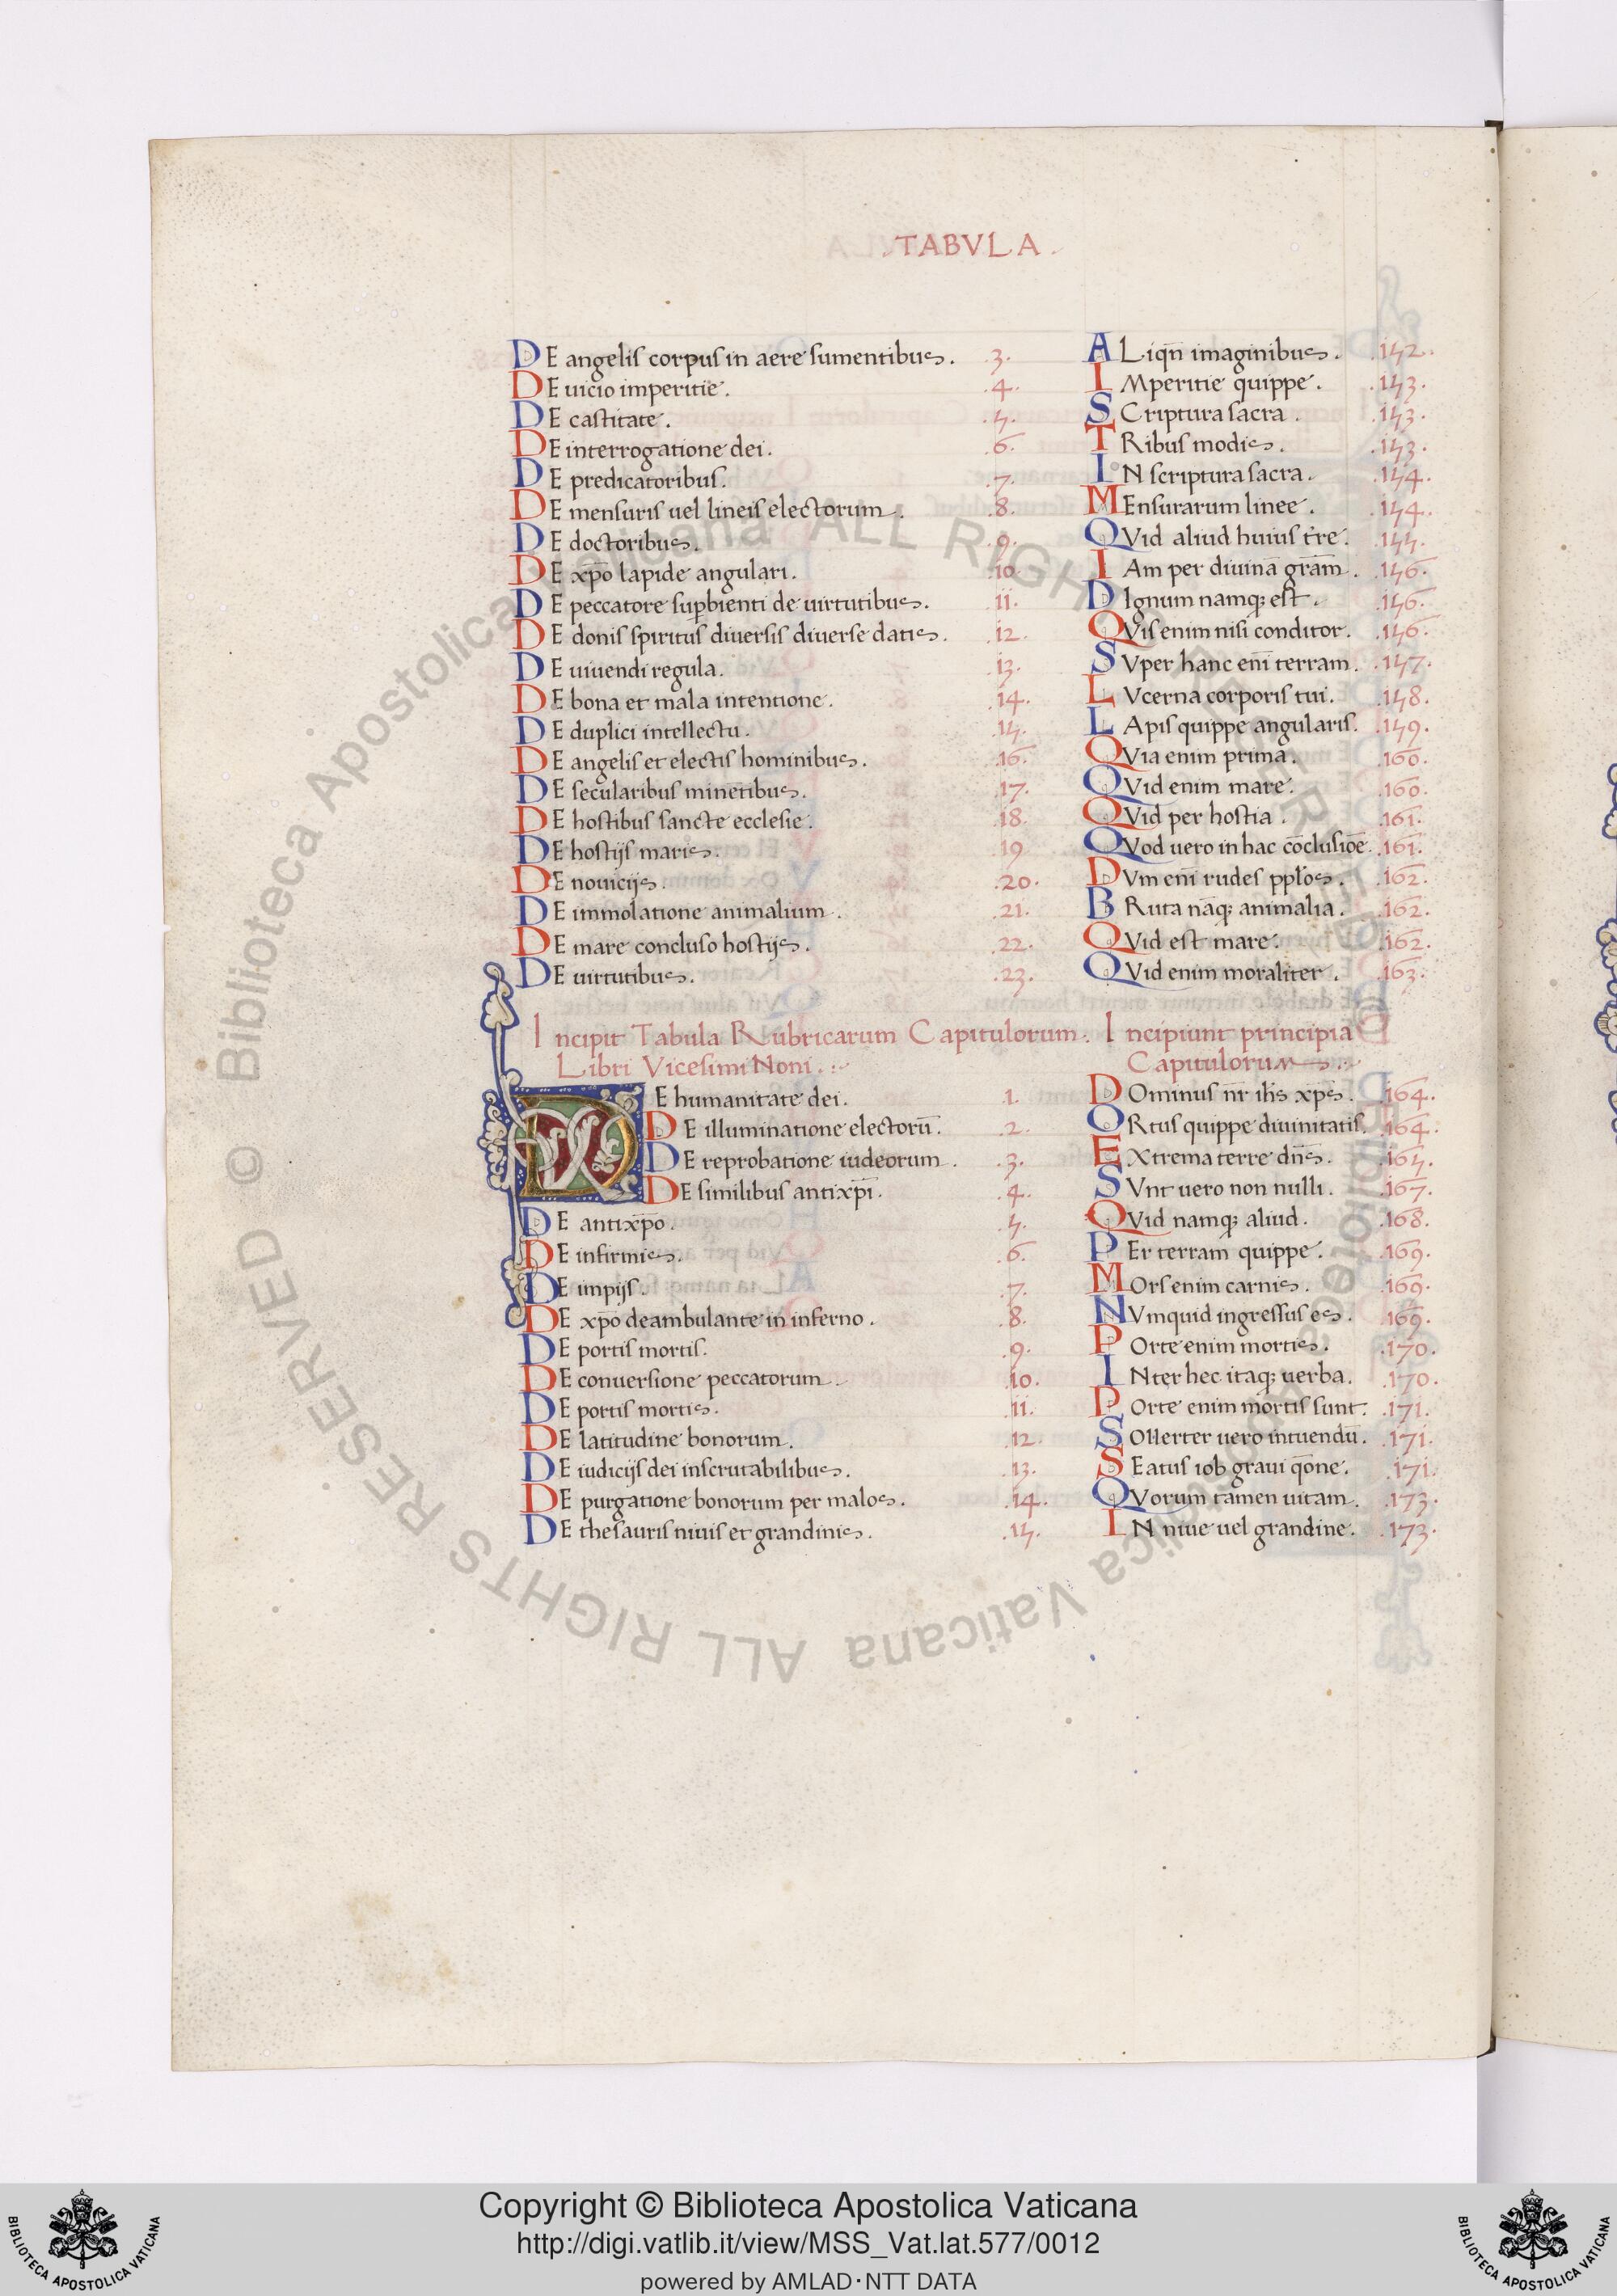 .TABVLA.
DE angelis corpus in aere sumentibus. .3. ALiqn̄ imaginibus. .152.
DE uicio imperitie. .4. IMperitie quippe. .153.
DE castitate. .5. SCriptura sacra. .153.
DE interrogatione dei. .6. TRibus modis. .153.
DE predicatoribus. .7. IN scriptura sacra. .154.
DE mensuris uel lineis electorum. .8. MEnsurarum linee. .154.
DE doctoribus. .9. QVid aliud huius tr̄e. .155.
DE xp̄o lapide angulari. .10. IAm per diuinā gr̄am. .156.
DE peccatore sup̱bienti de uirtutibus. .11. DIgnum namq; est. .156.
DE donis spiritus diuersis diuerse datis. .12. QVis enim nisi conditor. .156.
DE uiuendi regula. .13. SVper hanc enī terram. .157.
DE bona et mala intentione. .14. LVcerna corporis tui. .158.
DE duplici intellectu. .15. LApis quippe angularis. .159.
DE angelis et electis hominibus. .16. QVia enim prima. .160.
DE secularibus minētibus. .17. QVid enim mare. .160.
DE hostibus sancte ecclesie. .18. QVid per hostia. .161.
DE hostijs maris. .19 QVod uero in hac cōclusiōe. .161.
DE nouicijs. .20. DVm enī rudes pplōs. .162.
DE immolatione animalium. .21. BRuta nāq; animalia. .162.
DE mare concluso hostijs. .22. QVid est mare. .162.
DE uirtutibus. .23. QVid enim moraliter. .163.
Incipit Tabula Rubricarum Capitulorum. Incipiunt principia
Libri Vicesimi Noni. Capitulorum
DE humanitate dei. .1. DOminus nr̄ ih̄s xp̄s. .164.
DE illuminatione electorū. .2. ORtus quippe diuinitatis. .164.
DE reprobatione iudeorum. .3. EXtrema terre dn̄s. .165.
DE similibus antixp̄i. .4. SVnt uero non nulli. .167.
DE antixp̄o. .5. QVid namq; aliud. .168.
DE infirmis. .6. PEr terram quippe. .169.
DE impijs. .7. MOrs enim carnis. .169.
DE xp̄o deambulante in inferno. .8. NVmquid ingressus es. .169.
DE portis mortis. .9. POrte enim mortis. .170.
DE conuersione peccatorum. .10. INter hec itaq; uerba. .170.
DE portis mortis. .11. POrte enim mortis sunt. .171.
DE latitudine bonorum. .12. SOllerter uero intuendū. .171.
DE iudicijs dei inscrutabilibus. .13. SEatus iob graui qōne. .171.
DE purgatione bonorum per malos. .14. QVorum tamen uitam. .173.
DE thesauris niuis et grandinis. .15. IN niue uel grandine. .173.
© Biblioteca Apostolica Vaticana ALL RIGHTS RESERVED © Biblioteca Apostolica Vaticana ALL RIGHTS RESERVED
Copyright © Biblioteca Apostolica Vaticana
http://digi.vatlib.it/view/MSS_Vat.lat.577/0012
powered by AMLAD·NTT DATA
BIBLIOTECA APOSTOLICA VATICANA
BIBLIOTECA APOSTOLICA VATICANA